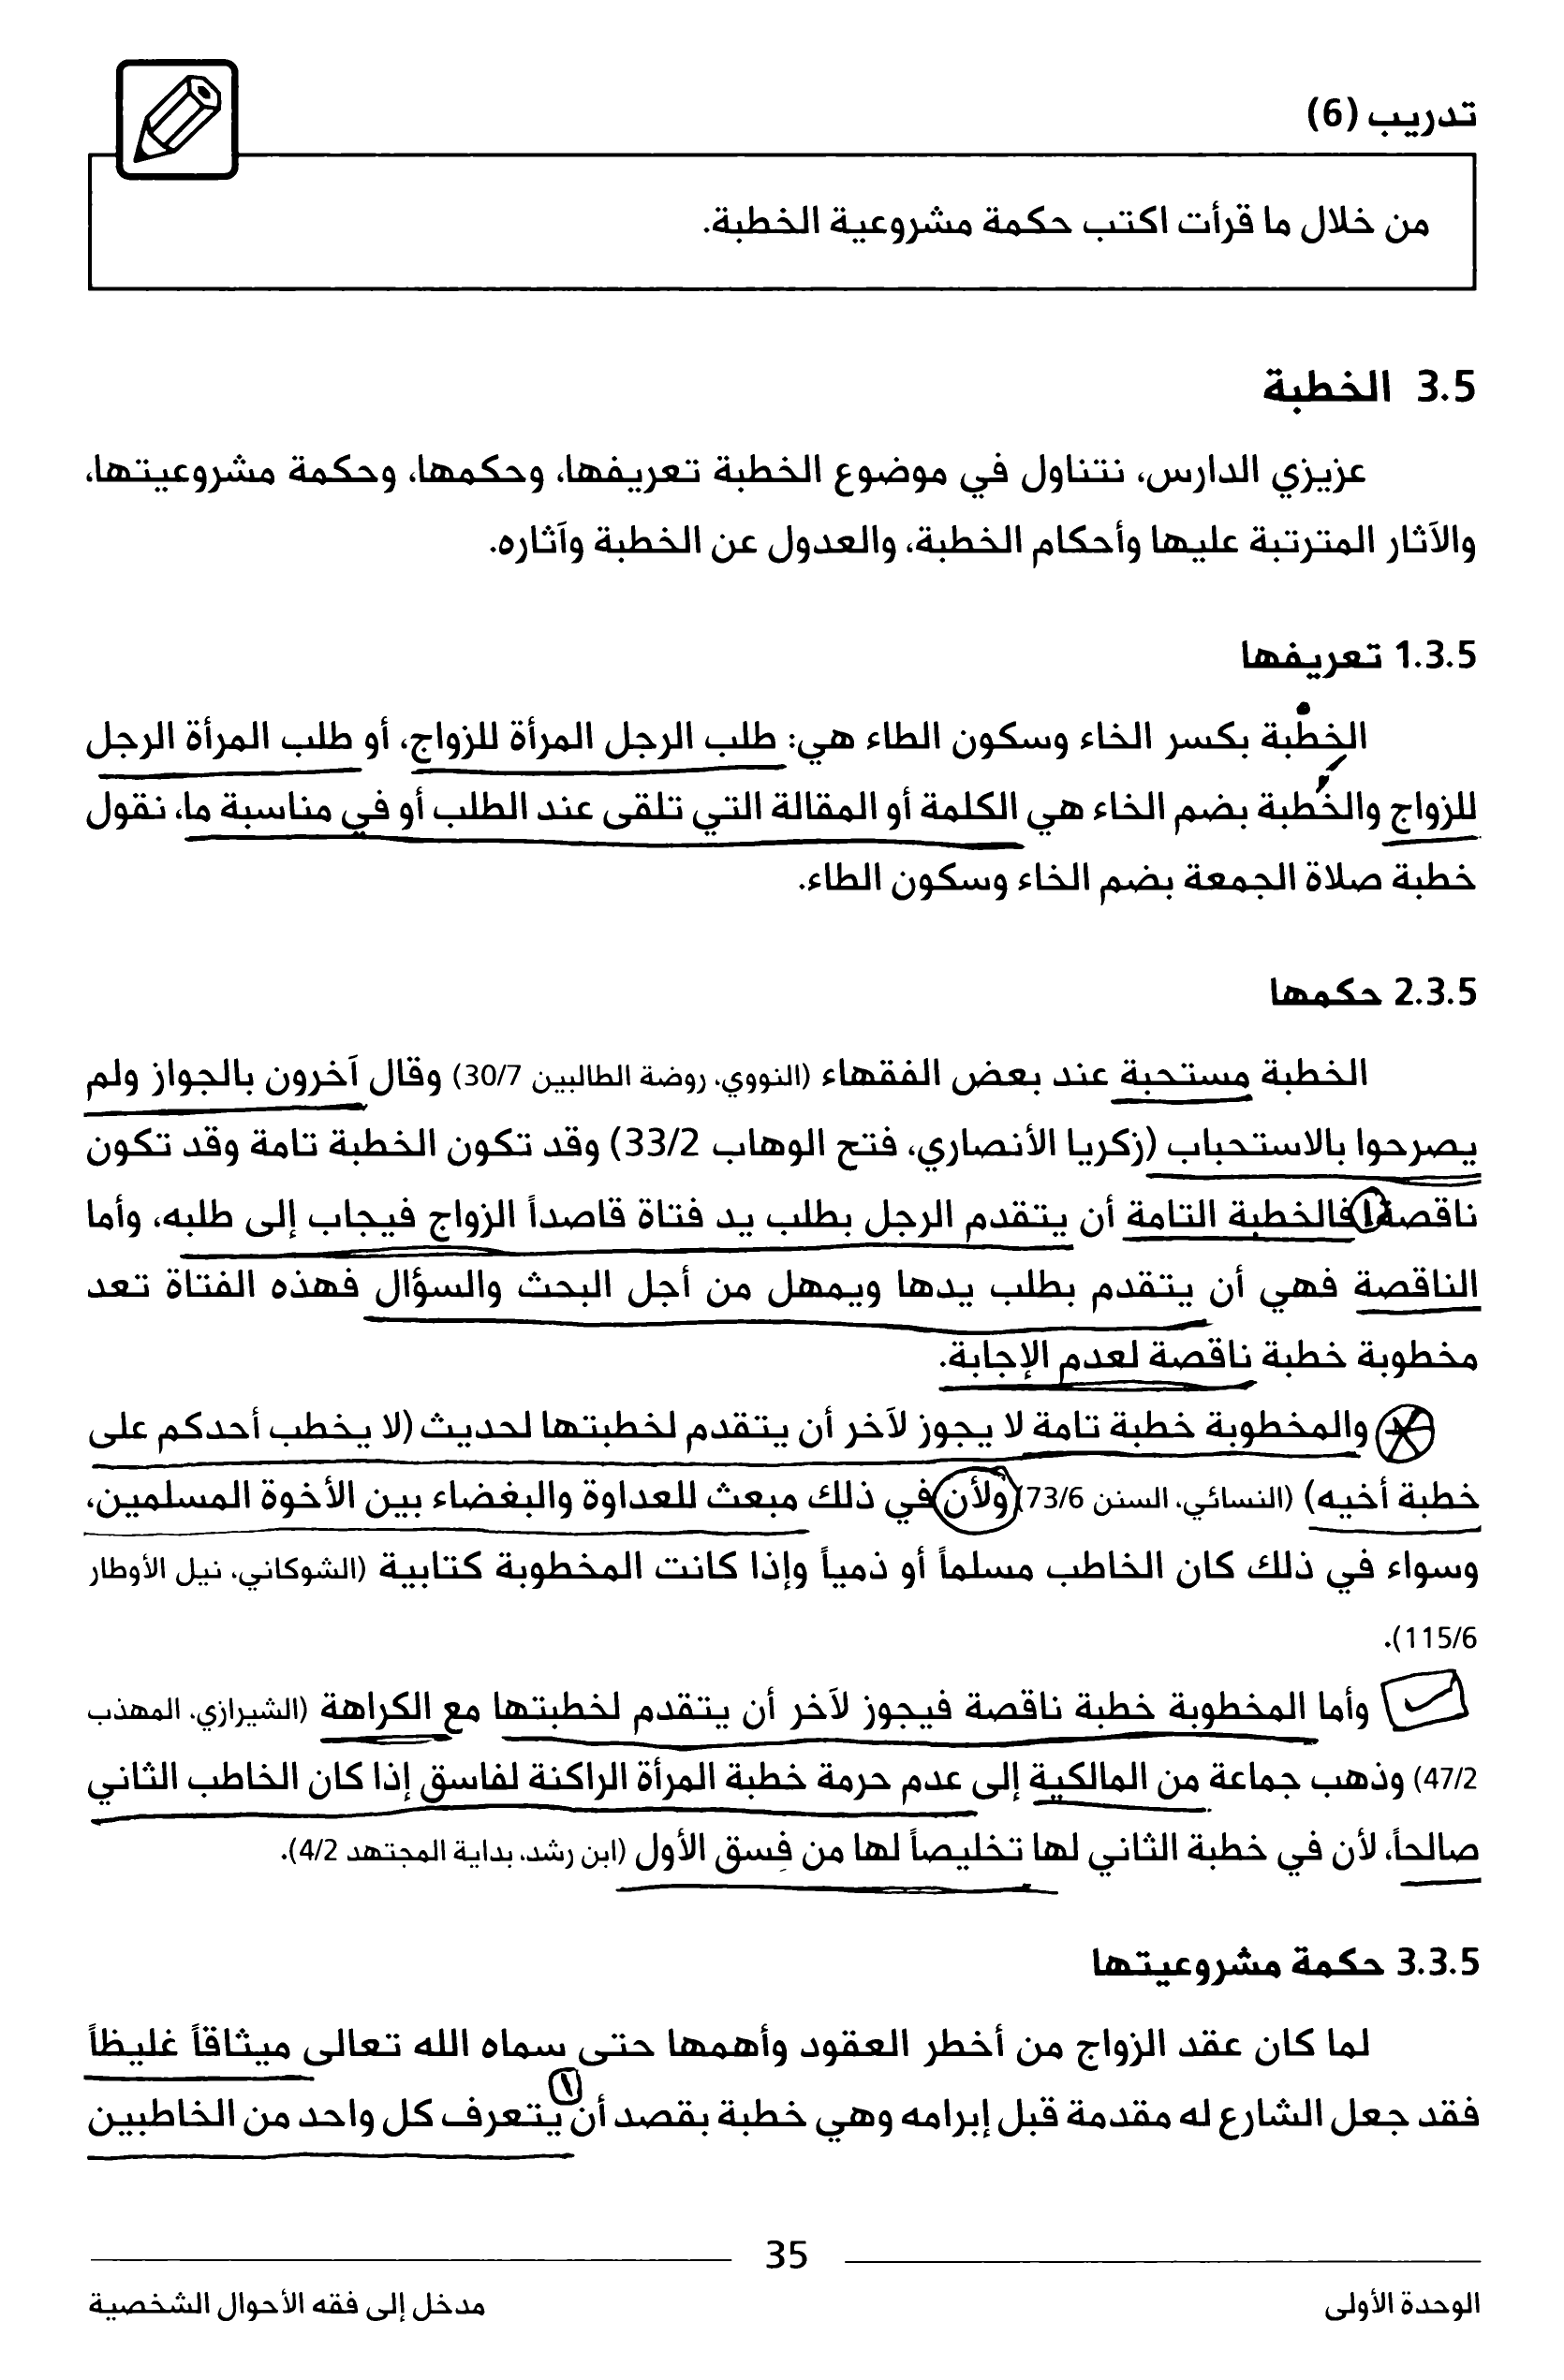 تدريب (6)
من خلال ما قرأت اكتب حكمة مشروعية الخطبة.
3.5 الخطبة
عزيزي الدارس، نتناول في موضوع الخطبة تعريفها، وحكمها، وحكمة مشروعيتها،
والآثار المترتبة عليها وأحكام الخطبة، والعدول عن الخطبة وآثاره.
1.3.5 تعريفها
الخطبة بكسر الخاء وسكون الطاء هي: طلب الرجل المرأة للزواج، أو طلب المرأة الرجل
للزواج والخطبة بضم الخاء هي الكلمة أو المقالة التي تلقى عند الطلب أو في مناسبة ما، نقول
خطبة صلاة الجمعة بضم الخاء وسكون الطاء.
2.3.5 حكمها
الخطبة مستحبة عند بعض الفقهاء (النووي، روضة الطالبين 30/7) وقال آخرون بالجواز ولم
يصرحوا بالاستحباب (زكريا الأنصاري، فتح الوهاب 33/2) وقد تكون الخطبة تامة وقد تكون
ناقصة فالخطبة التامة أن يتقدم الرجل بطلب يد فتاة قاصداً الزواج فيجاب إلى طلبه، وأما
الناقصة فهي أن يتقدم بطلب يدها ويمهل من أجل البحث والسؤال فهذه الفتاة تعد
مخطوبة خطبة ناقصة لعدم الإجابة.
والمخطوبة خطبة تامة لا يجوز لآخر أن يتقدم لخطبتها لحديث (لا يخطب أحدكم على
خطبة أخيه) (النسائي، السنن 73/6) ولأن في ذلك مبعث للعداوة والبغضاء بين الأخوة المسلمين،
وسواء في ذلك كان الخاطب مسلماً أو ذمياً وإذا كانت المخطوبة كتابية (الشوكاني، نيل الأوطار
115/6).
وأما المخطوبة خطبة ناقصة فيجوز لآخر أن يتقدم لخطبتها مع الكراهة (الشيرازي، المهذب
47/2) وذهب جماعة من المالكية إلى عدم حرمة خطبة المرأة الراكنة لفاسق إذا كان الخاطب الثاني
صالحاً، لأن في خطبة الثاني لها تخليصاً لها من فسق الأول (ابن رشد، بداية المجتهد 4/2).
3.3.5 حكمة مشروعيتها
لما كان عقد الزواج من أخطر العقود وأهمها حتى سماه الله تعالى ميثاقاً غليظاً
فقد جعل الشارع له مقدمة قبل إبرامه وهي خطبة بقصد أن يتعرف كل واحد من الخاطبين
35
الوحدة الأولى
مدخل إلى فقه الأحوال الشخصية